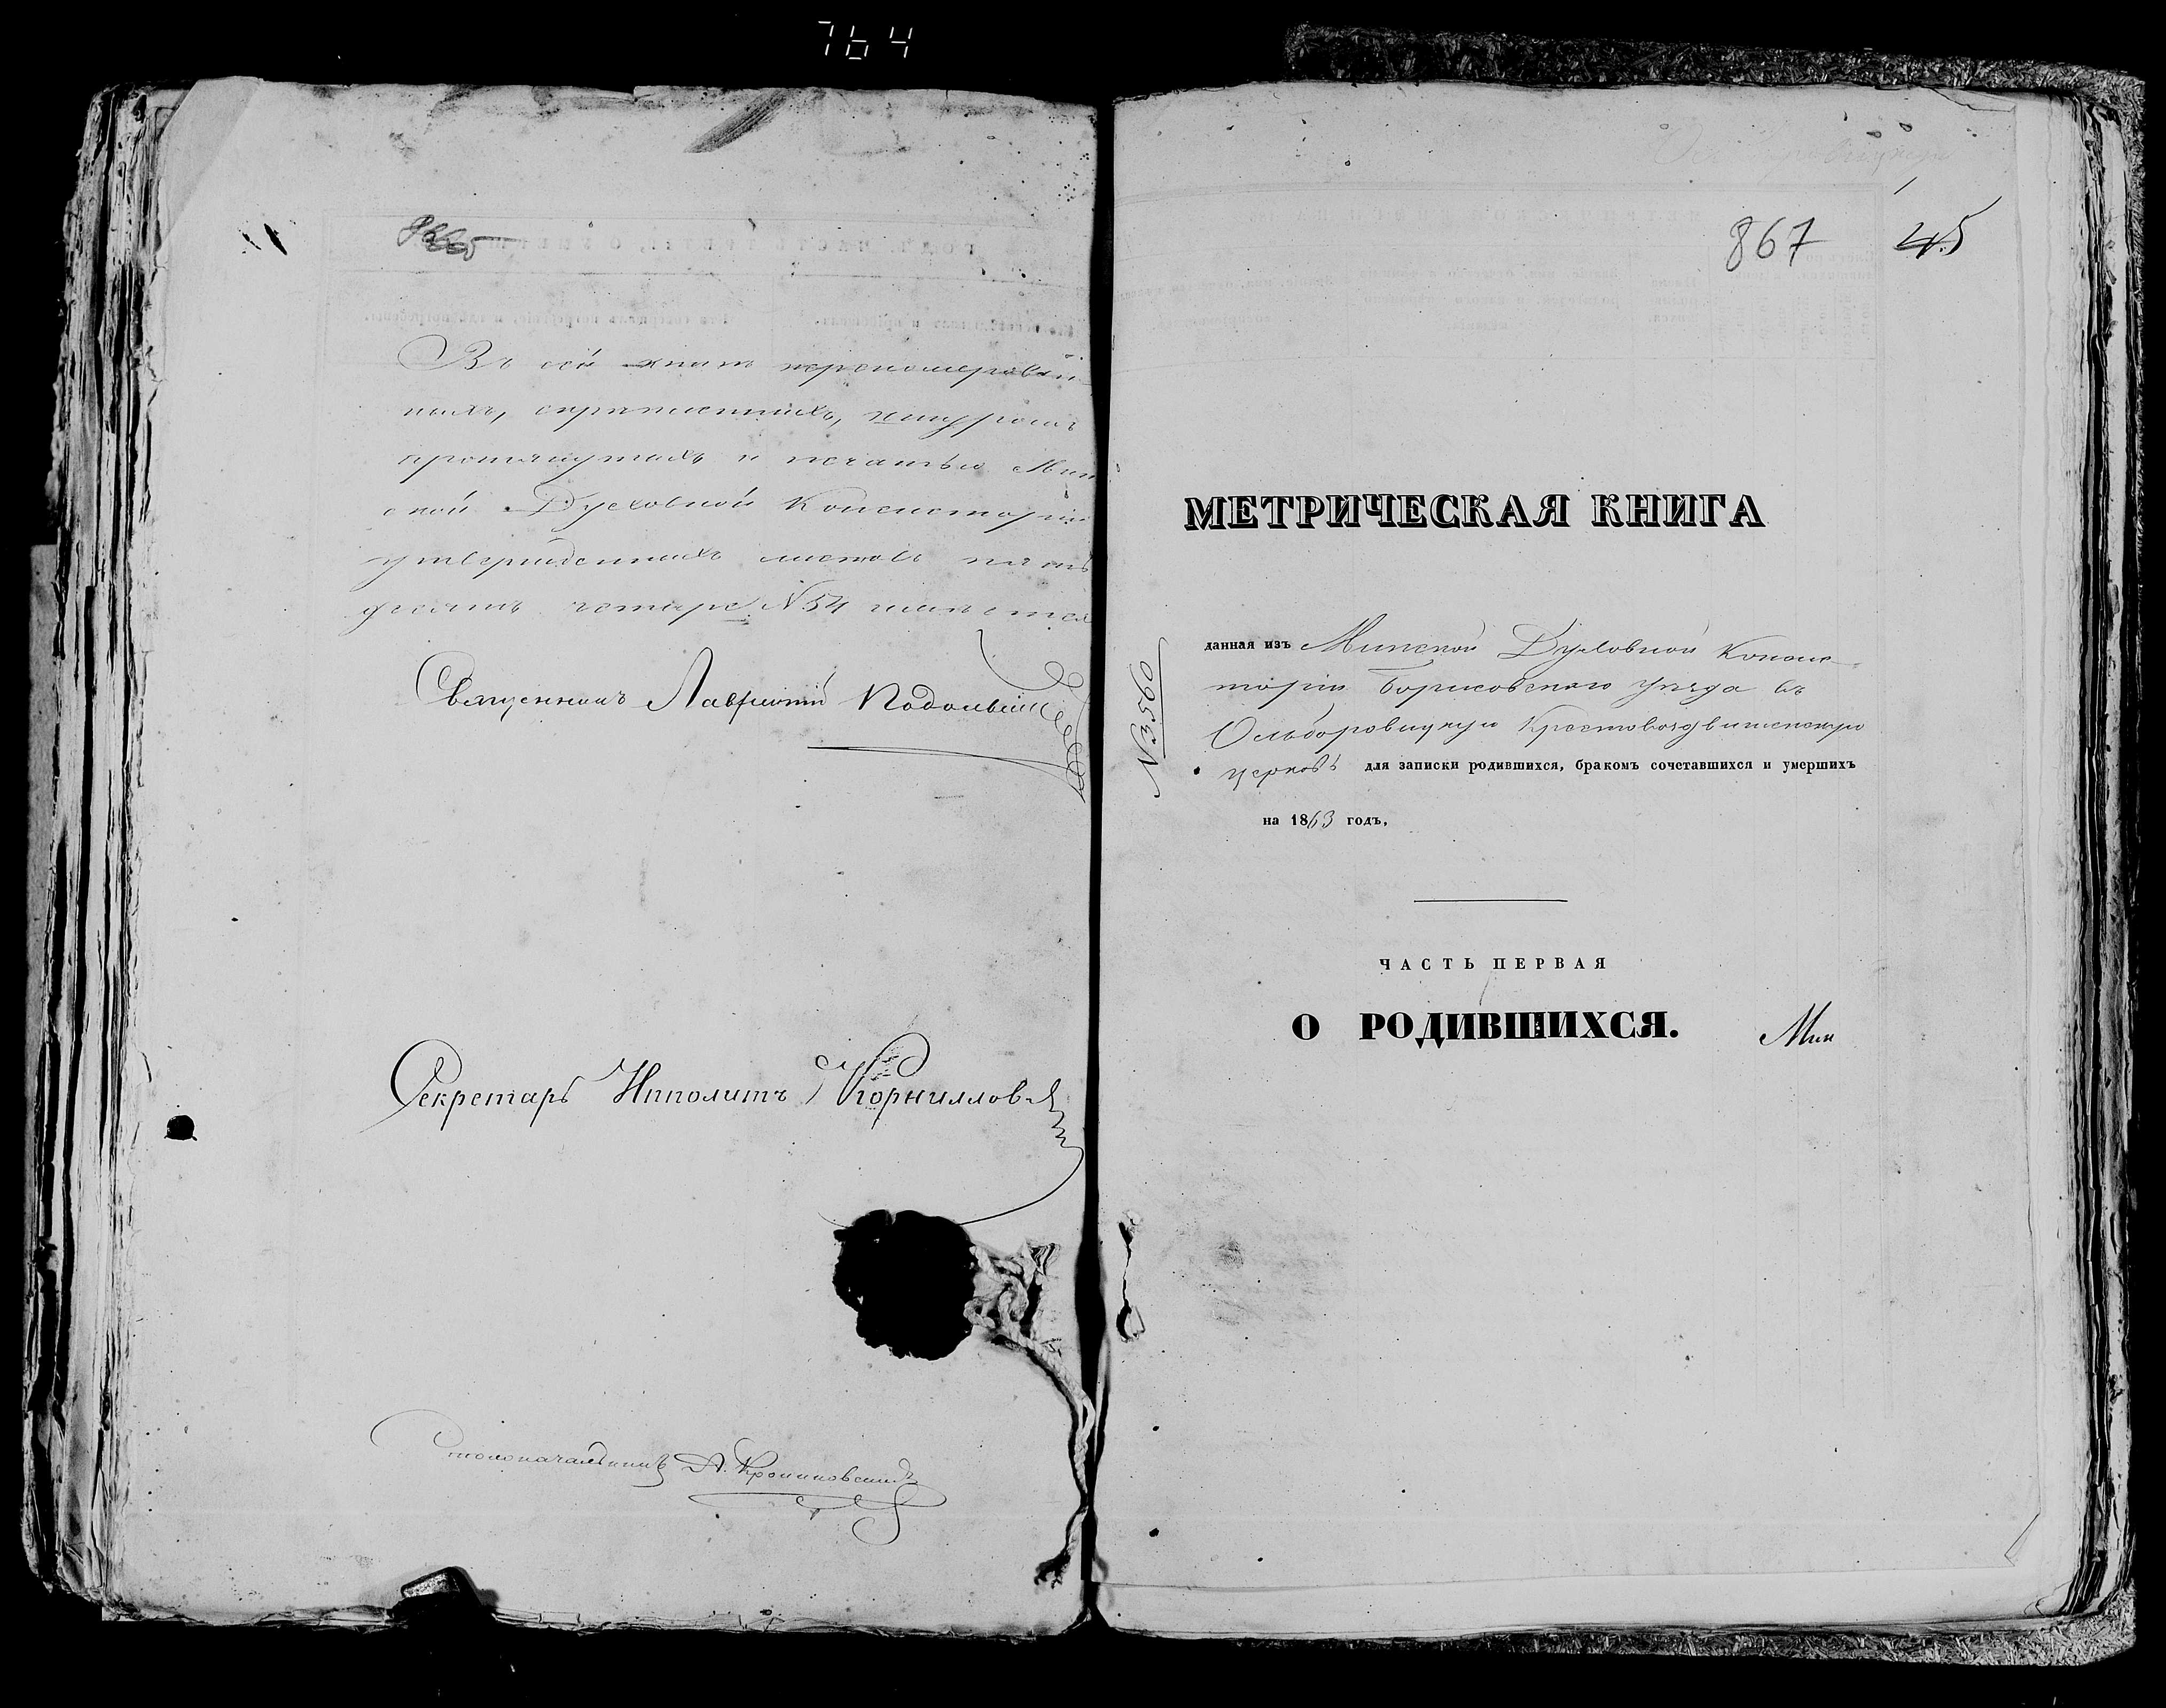 764
Въ сей книгѣ перенумерован
ныхъ, скрѣпленныхъ, шнуромъ
протянутыхъ и печатью Мин
ской Духовной Консисторіи
утвержденныхъ листовъ пять
десятъ четыре № 54 имѣется
Священникъ Лаврентій
Секретарь Ипполитъ Корниллов
Столоначальникъ А.
867 45
МЕТРИЧЕСКАЯ КНИГА
№ 3560
данная изъ Минской Духовной Консис-
торіи Борисовскаго уѣзда въ
Ольборовицкую Крестовоздвиженскую
церковь для записки родившихся, бракомъ сочетавшихся и умершихъ
на 1863 годъ,
ЧАСТЬ ПЕРВАЯ
О РОДИВШИХСЯ.
Мин